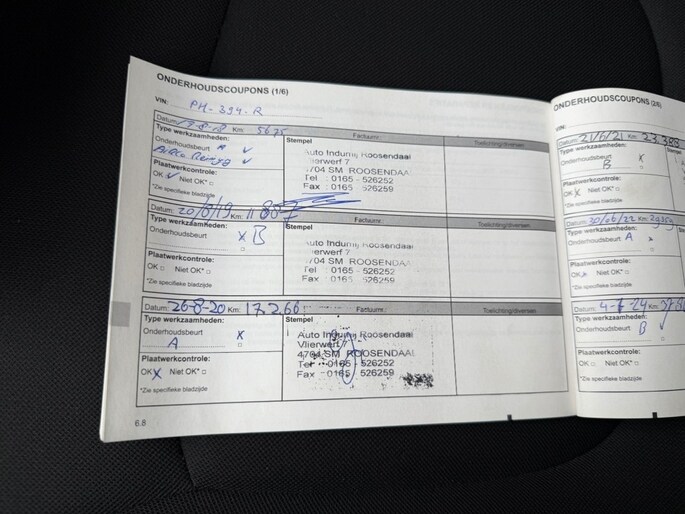 ONDERHOUDSCOUPONS (1/6)
VIN: PH-394-R
Datum: Km: 5675 Factuurnr.:
Type werkzaamheden: Stempel Toelichting/diversen
Onderhoudsbeurt A ✓
✓
Plaatwerkcontrole:
OK ✓ Niet OK* □
*Zie specifieke bladzijde
Auto Indumij Roosendaal
Vlierwerf 7
4704 SM ROOSENDAAL
Tel : 0165 - 526252
Fax : 0165 - 526259
Datum: 20/8/19 Km: 11 887 Factuurnr.:
Type werkzaamheden: Stempel Toelichting/diversen
Onderhoudsbeurt X B
Plaatwerkcontrole:
OK □ Niet OK* □
*Zie specifieke bladzijde
Auto Indumij Roosendaal
Vlierwerf 7
4704 SM ROOSENDAAL
Tel : 0165 - 526252
Fax : 0165 - 526259
Datum: 26-8-20 Km: 17.266 Factuurnr.:
Type werkzaamheden: Stempel Toelichting/diversen
Onderhoudsbeurt X
A □
Plaatwerkcontrole:
OK X Niet OK* □
*Zie specifieke bladzijde
Auto Indumij Roosendaal
Vlierwerf 7
4704 SM ROOSENDAAL
Tel : 0165 526252
Fax : 0165 526259
6.8
ONDERHOUDSCOUPONS (2/6)
VIN:
Datum: 21/6/21 Km: 23.383
Type werkzaamheden:
Onderhoudsbeurt X
B □
Plaatwerkcontrole:
OK X Niet OK* □
*Zie specifieke bladzijde
Datum: 30/06/22 Km: 29359
Type werkzaamheden:
Onderhoudsbeurt A x
□
Plaatwerkcontrole:
OK x Niet OK* □
*Zie specifieke bladzijde
Km:
Type werkzaamheden:
Onderhoudsbeurt B ✓
□
Plaatwerkcontrole:
OK □ Niet OK* □
*Zie specifieke bladzijde